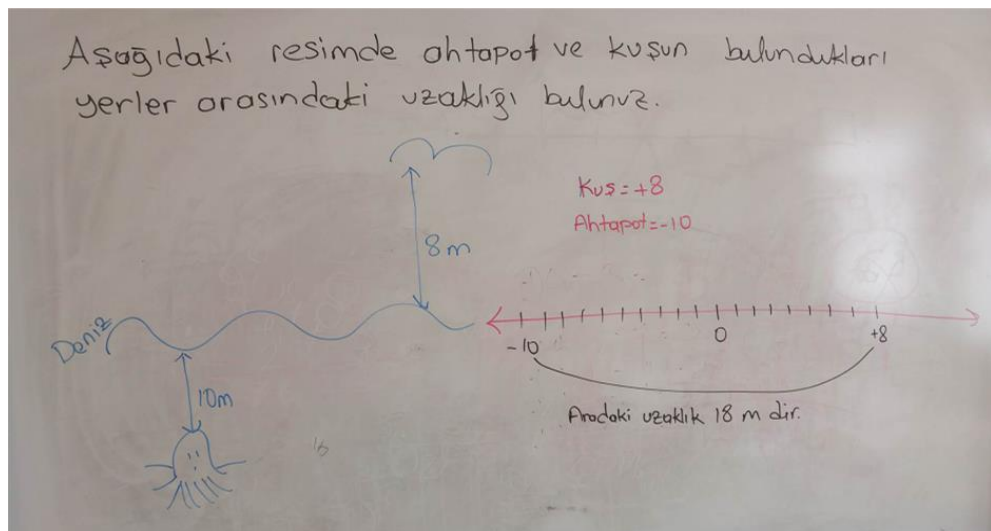 Aşağıdaki resimde ahtapot ve kuşun bulundukları
yerler arasındaki uzaklığı bulunuz.
Kuş=+8
Ahtapot=-10
8m
Deniz
10m
-10 0 +8
Aradaki uzaklık 18 m dir.